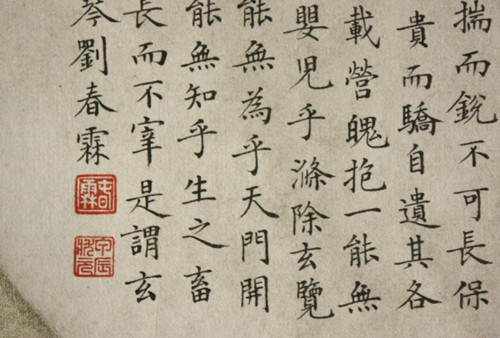 揣而銳不可長保
貴而驕自遺其咎
載營魄抱一能無
嬰兒乎滌除玄覽
能無為乎天門開
能無知乎生之畜
長而不宰是謂玄
劉春霖
春霖
甲辰狀元